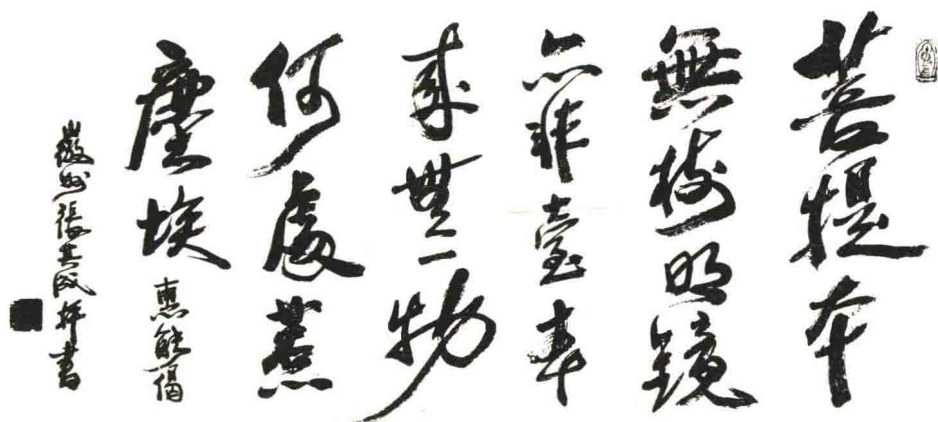 菩提本
無樹明鏡
亦非臺本
來無一物
何處惹
塵埃 惠能偈
徽州張其成拜書